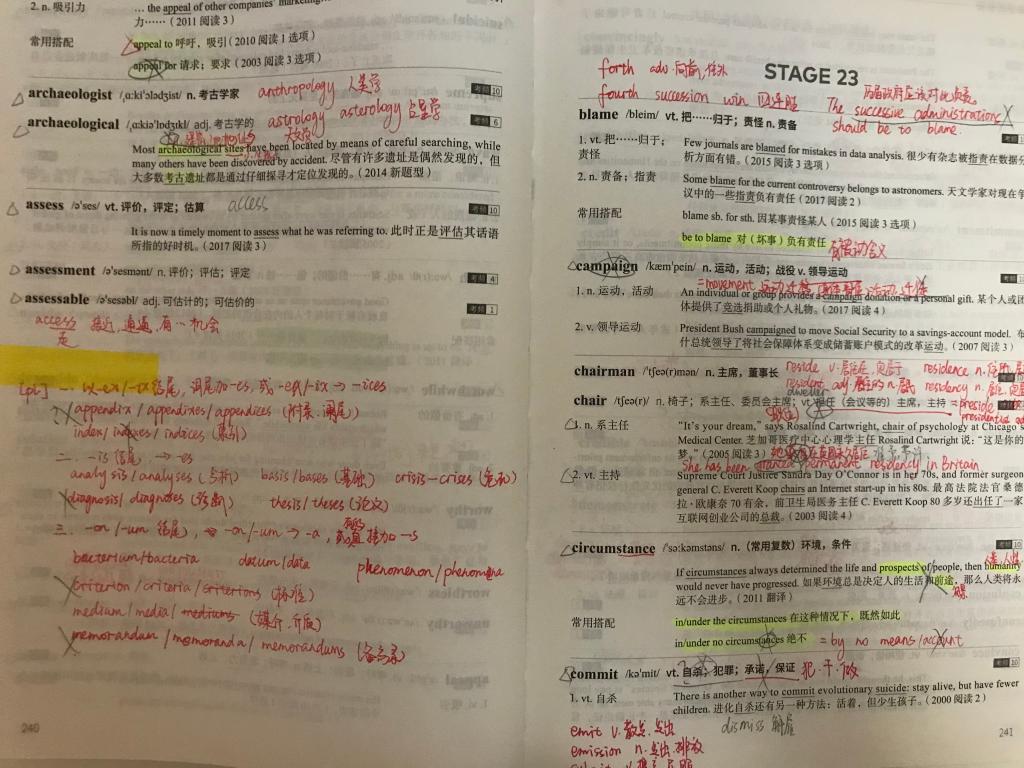 2. n. 吸引力
… the appeal of other companies' marketing…
力……（2011 阅读 3）
常用搭配
appeal to 呼吁，吸引（2010 阅读 1 选项）
appeal for 请求；要求（2003 阅读 3 选项）
archaeologist /ˌɑːkiˈɒlədʒist/ n. 考古学家
考频 10
anthropology 人类学
archaeological /ˌɑːkiəˈlɒdʒɪkl/ adj. 考古学的
考频 6
astrology asterology 占星学
Most archaeological sites have been located by means of careful searching, while
many others have been discovered by accident. 尽管有许多遗址是偶然发现的，但
大多数考古遗址都是通过仔细探寻才定位发现的。（2014 新题型）
assess /əˈses/ vt. 评价，评定；估算
access
考频 10
It is now a timely moment to assess what he was referring to. 此时正是评估其话语
所指的好时机。（2017 阅读 3）
assessment /əˈsesmənt/ n. 评价；评估；评定
考频 4
assessable /əˈsesəbl/ adj. 可估计的；可估价的
考频 1
access 接近，通道，有…机会
[pl] 一. 以-ex/-ix结尾，词尾加-es, 或 -ex/-ix → -ices
appendix / appendixes/appendices (附录.阑尾)
index/indexes/indices (索引)
二. -is 结尾， → -es
analysis/analyses (分析) basis/bases (基础) crisis-crises (危机)
diagnosis/diagnoses (诊断) thesis/theses (论文)
三. -on/-um 结尾, -on/-um → -a, 或直接加-s
bacterium/bacteria datum/data phenomenon/phenomena
criterion/criteria/criterions (标准)
medium/media/mediums (媒介.)
memorandum/memoranda/memorandums (备忘录)
240
forth adv. 向前，往外
fourth succession win 四连胜
STAGE 23
The successive administrations
should be to blame.
blame /bleim/ vt. 把……归于；责怪 n. 责备
1. vt. 把……归于；
责怪
Few journals are blamed for mistakes in data analysis. 很少有杂志被指责在数据分
析方面有错。（2015 阅读 3 选项）
2. n. 责备；指责
Some blame for the current controversy belongs to astronomers. 天文学家对现在争
议中的一些指责负有责任（2017 阅读 2）
常用搭配
blame sb. for sth. 因某事责怪某人（2015 阅读 3 选项）
be to blame 对（坏事）负有责任
有被动含义
campaign /kæmˈpein/ n. 运动，活动；战役 v. 领导运动
=movement
1. n. 运动，活动
An individual or group provides a campaign donation or a personal gift. 某个人或团
体提供了竞选捐助或个人礼物。（2017 阅读 4）
2. v. 领导运动
President Bush campaigned to move Social Security to a savings-account model. 布
什总统领导了将社会保障体系变成储蓄账户模式的改革运动。（2007 阅读 3）
chairman /ˈtʃeə(r)mən/ n. 主席，董事长
reside v. 居住在, 定居于 residence n.
resident adj. n. 居民 residency n.
dweller
chair /tʃeə(r)/ n. 椅子；系主任、委员会主席；vt. 担任（会议等的）主席，主持
=preside
1. n. 系主任
“It's your dream,” says Rosalind Cartwright, chair of psychology at Chicago's
Medical Center. 芝加哥医疗中心心理学主任 Rosalind Cartwright 说：“这是你的
梦。”（2005 阅读 3）
She has been granted permanent residency in Britain
2. vt. 主持
Supreme Court Justice Sandra Day O'Connor is in her 70s, and former surgeon
general C. Everett Koop chairs an Internet start-up in his 80s. 最高法院法官桑德
拉·欧康奈 70 有余，前卫生局医务主任 C. Everett Koop 80 多岁还出任了一家
互联网创业公司的总裁。（2003 阅读 4）
circumstance /ˈsəːkəmstəns/ n.（常用复数）环境，条件
考频 10
If circumstances always determined the life and prospects of people, then humanity
would never have progressed. 如果环境总是决定人的生活和前途，那么人类将永
远不会进步。（2011 翻译）
常用搭配
in/under the circumstances 在这种情况下，既然如此
in/under no circumstances 绝不
= by no means/account
commit /kəˈmit/ vt. 自杀；犯罪；承诺，保证
犯.干.做
考频 10
1. vt. 自杀
There is another way to commit evolutionary suicide: stay alive, but have fewer
children. 进化自杀还有另一种方法：活着，但少生孩子。（2000 阅读 2）
emit v. 散发.发出
dismiss 解雇
emission n. 发出.排放
241